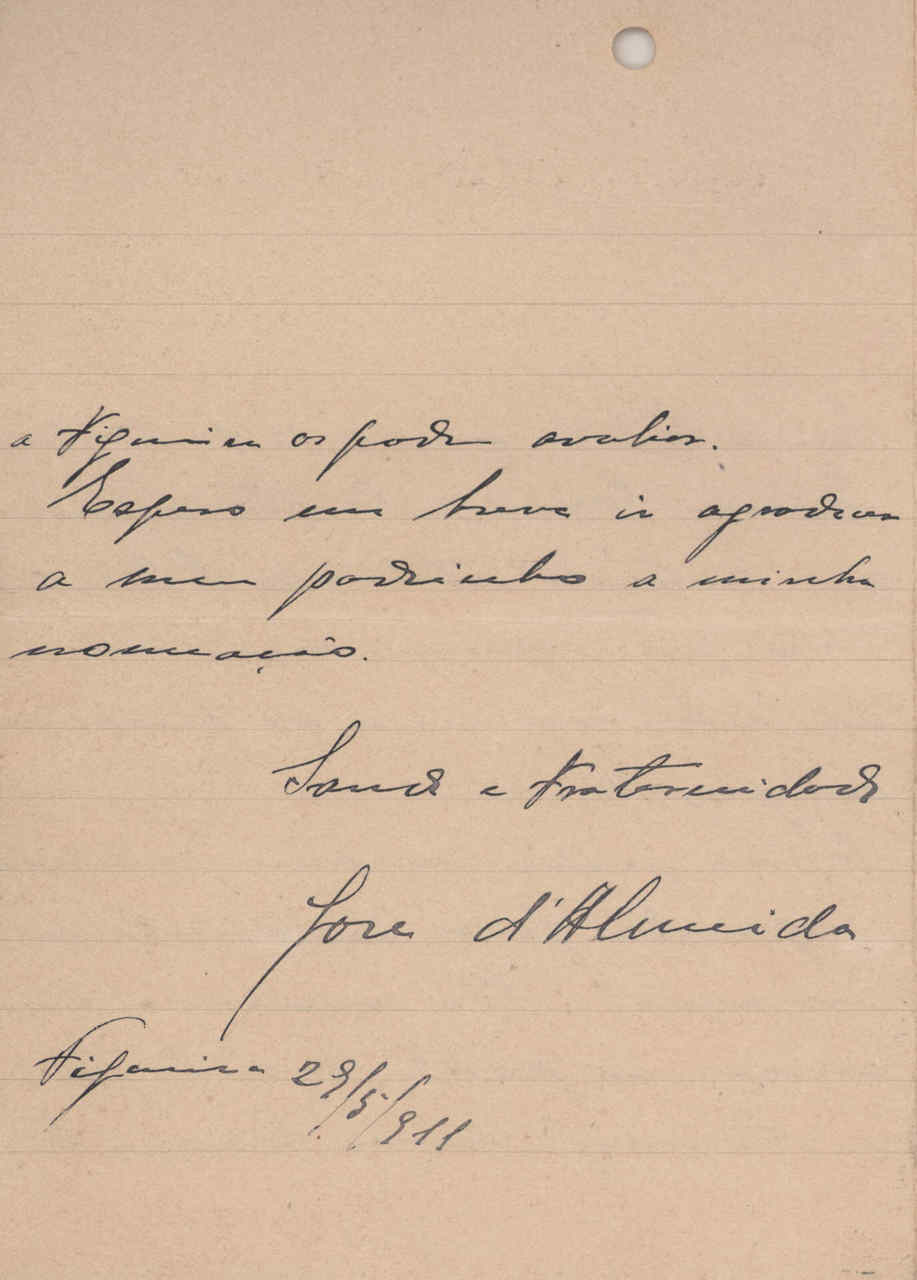 a Figueira os pode avaliar.
Espero em breve ir agradecer
a meu padrinho a minha
nomeação.
Saude e Fraternidade
Jose d'Almeida
Figueira 29/5/911